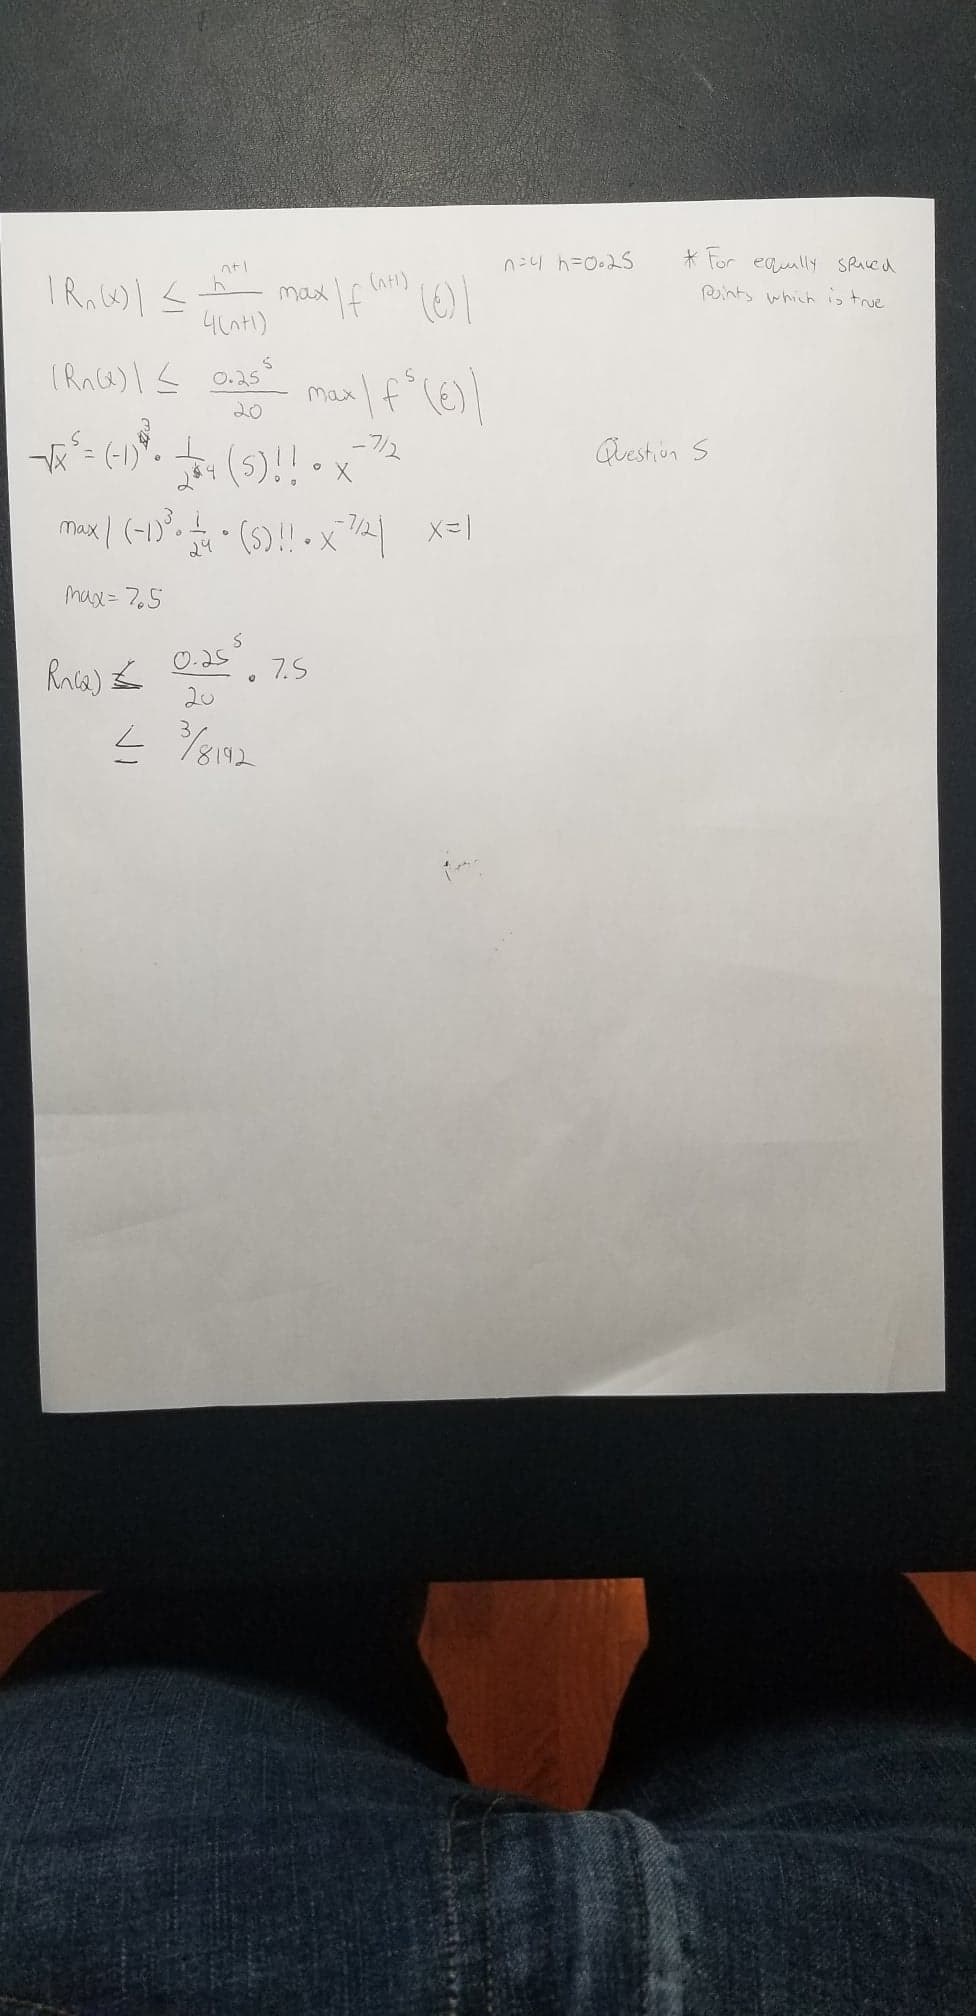 |Rn(x)| ≤ h^(n+1) / 4(n+1) max |f^(n+1) (ε)| n=4 h=0.25 * For equally spaced
points which is true
|Rn(x)| ≤ 0.25^5 / 20 max |f^5 (ε)|
√x^5 = (-1)^3 · 1/2^4 (5)!! · x^-7/2 Question 5
max | (-1)^3 · 1/2^4 · (5)!! · x^-7/2 | x=1
max = 7.5
Rn(x) ≤ 0.25^5 / 20 · 7.5
≤ 3/8192